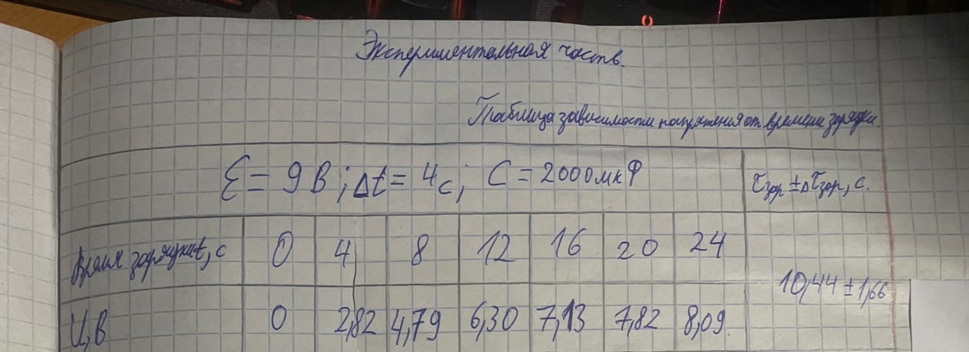 Экспериментальная часть.
Таблица зависимости напряжения от времени зарядки
Ɛ = 9 В ; Δt = 4 с ; C = 2000 мкФ
τзар ± Δτзар, с.
Время зарядки t, с 0 4 8 12 16 20 24
10,44 ± 1,66
U, В 0 2,82 4,79 6,30 7,13 7,82 8,09